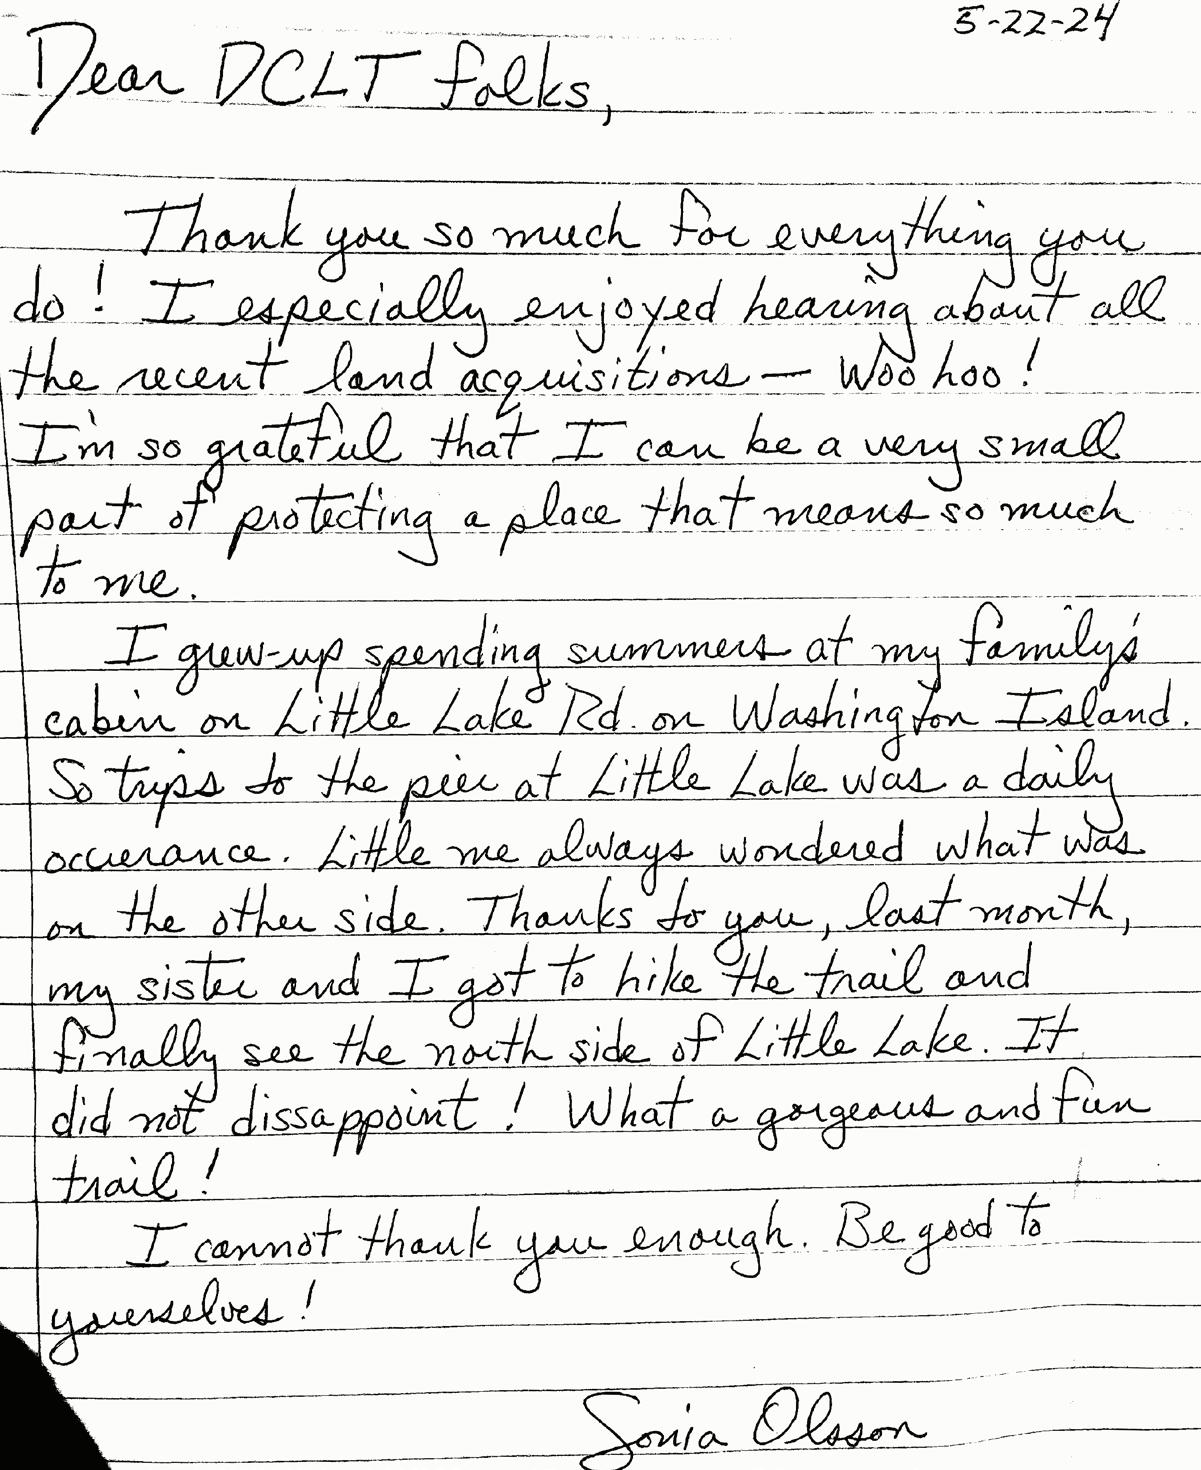 5-22-24
Dear DCLT folks,
Thank you so much for everything you
do! I especially enjoyed hearing about all
the recent land acquisitions — Woo hoo!
I'm so grateful that I can be a very small
part of protecting a place that means so much
to me.
I grew-up spending summers at my family's
cabin on Little Lake Rd. on Washington Island.
So trips to the pier at Little Lake was a daily
occurance. Little me always wondered what was
on the other side. Thanks to you, last month,
my sister and I got to hike the trail and
finally see the north side of Little Lake. It
did not dissappoint! What a gorgeous and fun
trail!
I cannot thank you enough. Be good to
yourselves!
Sonia Olsson